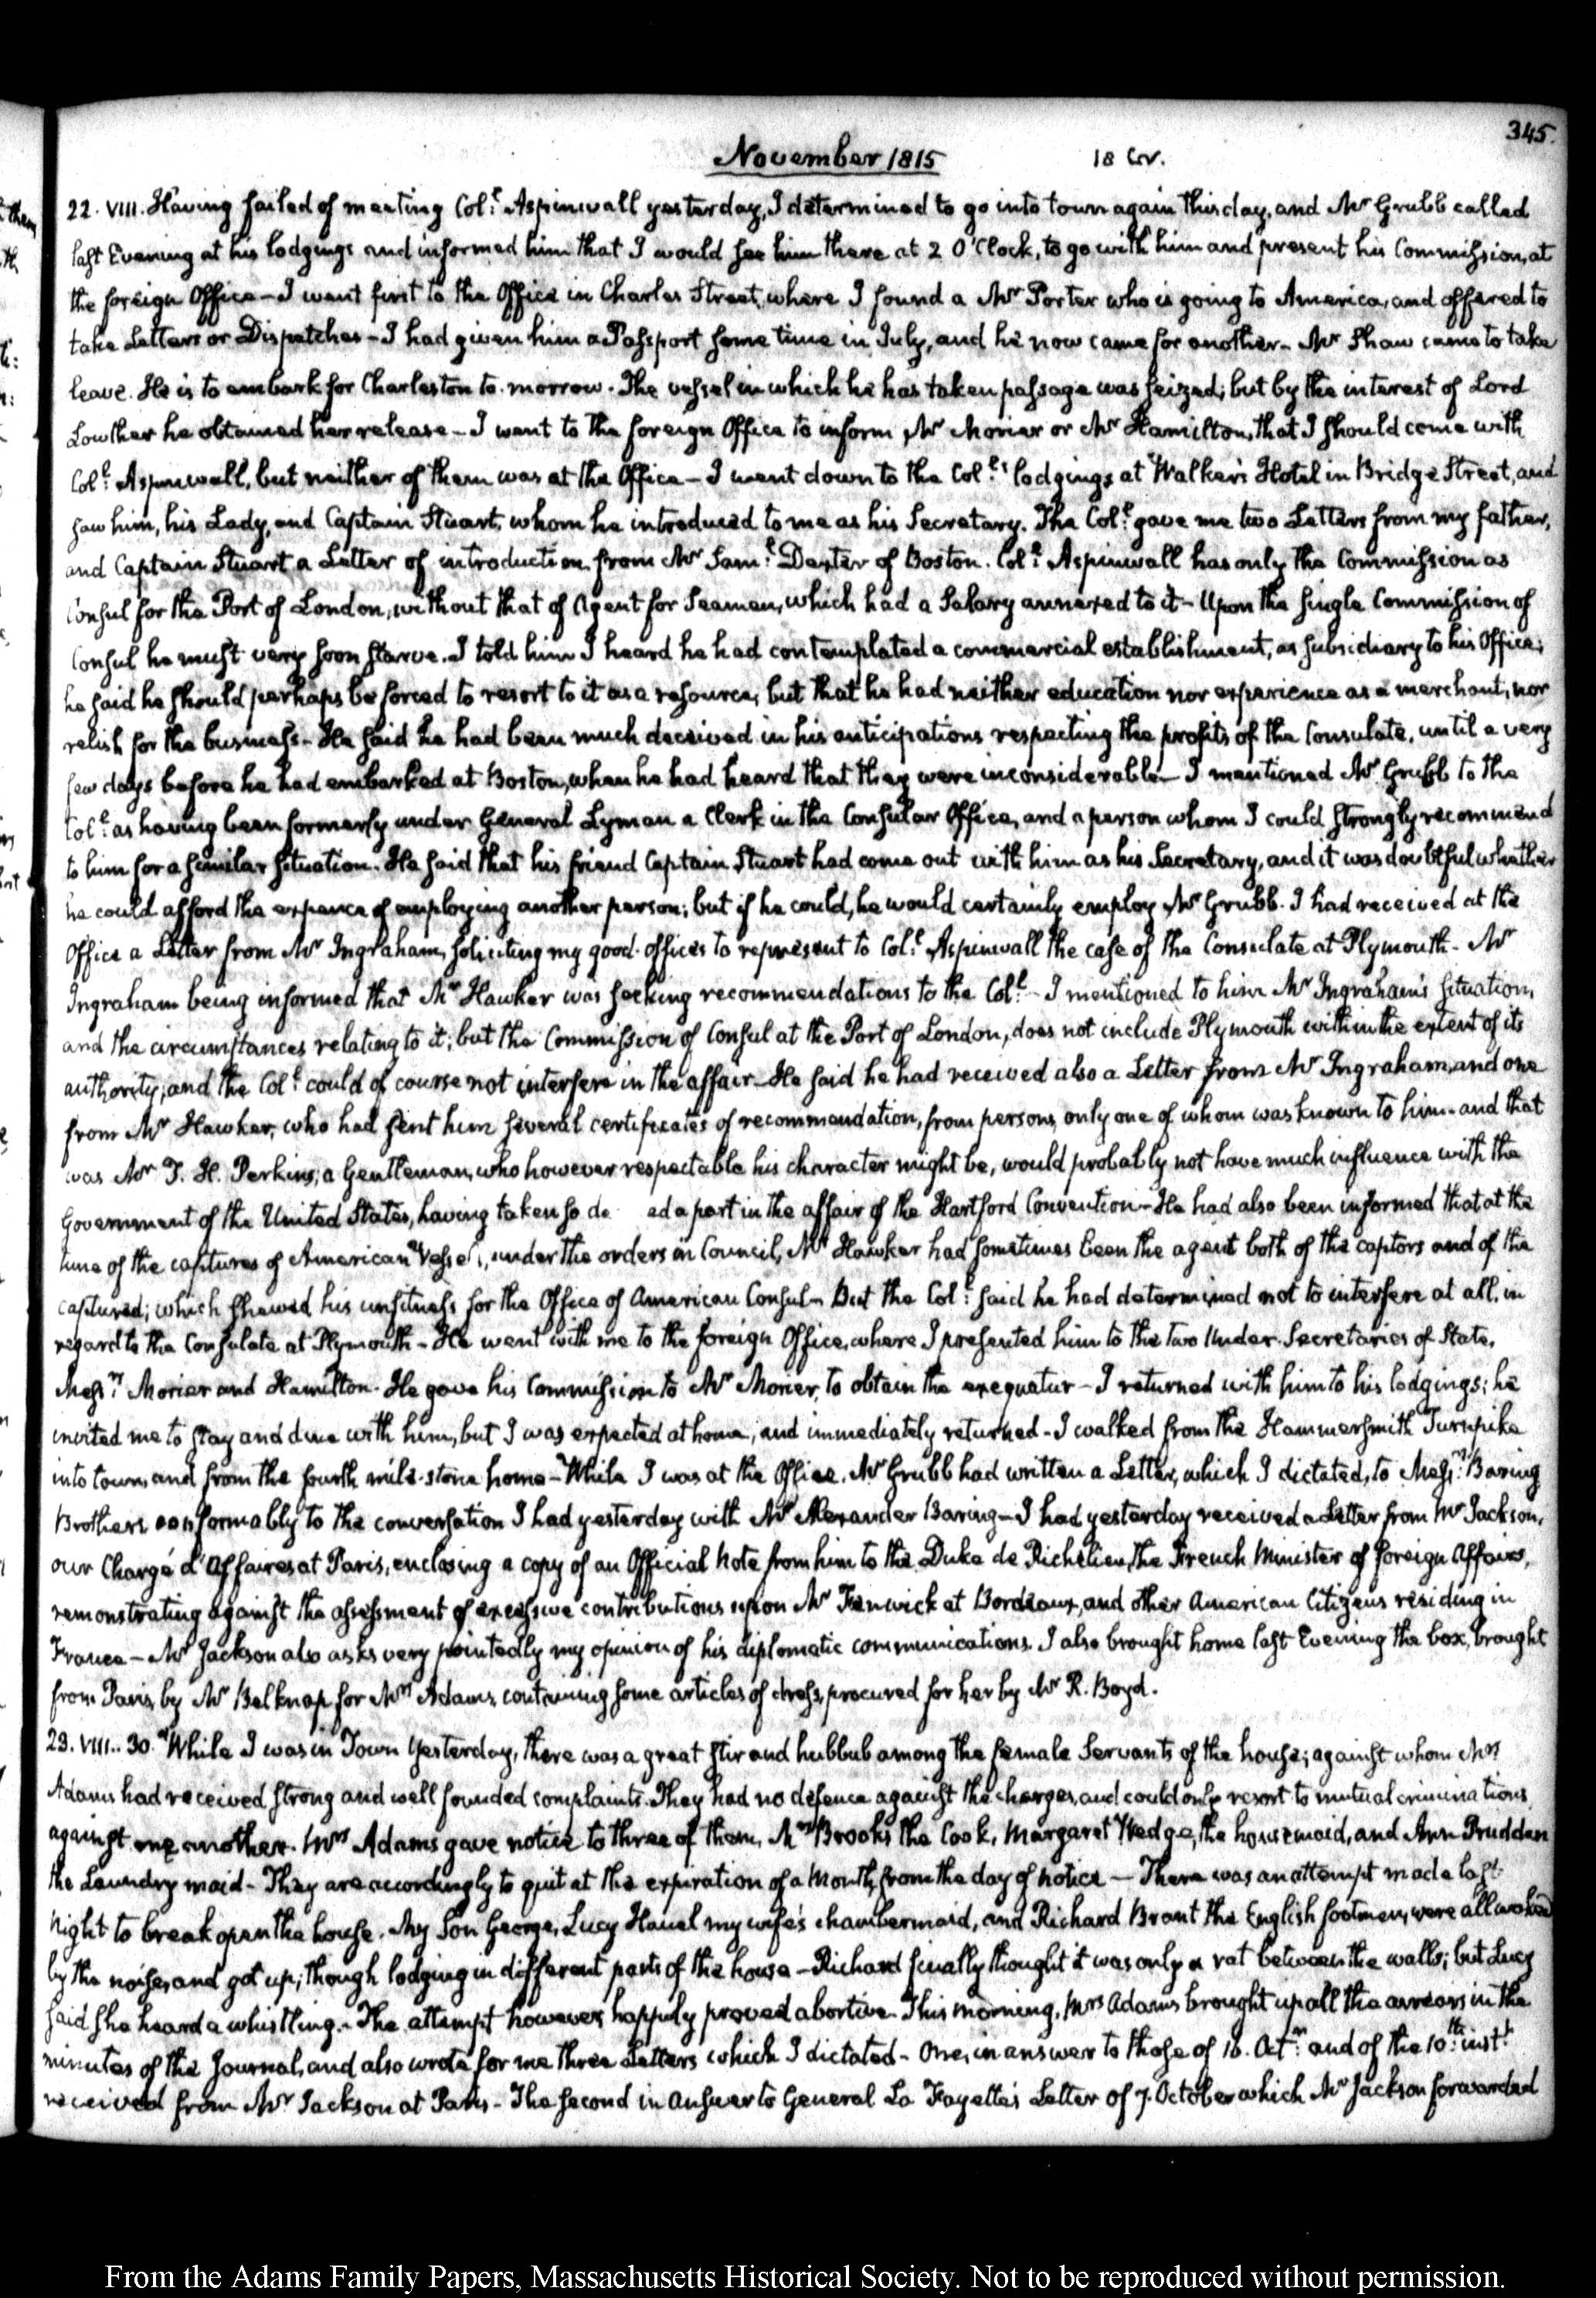 345.
November 1815 18 Cov.
22. VIII. Having failed of meeting Col.l Aspinwall yesterday, I determined to go into town again this day, and Mr Grubb called
last Evening at his lodgings and informed him that I would see him there at 2 O'Clock, to go with him and present his Commission, at
the foreign Office — I went first to the Office in Charles Street, where I found a Mr Porter who is going to America, and offered to
take Letters or Dispatches — I had given him a Passport some time in July, and he now came for another — Mr Shaw came to take
leave. He is to embark for Charleston to-morrow. The vessel in which he has taken passage was seized; but by the interest of Lord
Lowther he obtained her release — I went to the foreign Office to inform Mr Morier or Mr Hamilton, that I should come with
Col.l Aspinwall, but neither of them was at the Office — I went down to the Col.l's lodgings at Walker's Hotel in Bridge Street, and
saw him, his Lady, and Captain Stuart, whom he introduced to me as his Secretary. The Col.l gave me two Letters from my father,
and Captain Stuart a Letter of introduction from Mr Sam.l Dexter of Boston. Col.l Aspinwall has only the Commission as
Consul for the Port of London, without that of Agent for Seamen, which had a Salary annexed to it — Upon the single Commission of
Consul he must very soon starve. I told him I heard he had contemplated a commercial establishment, as subsidiary to his Office;
he said he should perhaps be forced to resort to it as a resource; but that he had neither education nor experience as a merchant, nor
relish for the business — He said he had been much deceived in his anticipations respecting the profits of the Consulate, until a very
few days before he had embarked at Boston, when he had heard that they were inconsiderable — I mentioned Mr Grubb to the
Col.l as having been formerly under General Lyman a Clerk in the Consular Office, and a person whom I could strongly recommend
to him for a similar situation. He said that his friend Captain Stuart had come out with him as his Secretary, and it was doubtful whether
he could afford the expence of employing another person; but if he could, he would certainly employ Mr Grubb. I had received at the
Office a Letter from Mr Ingraham, soliciting my good-offices to represent to Col.l Aspinwall the case of the Consulate at Plymouth — Mr
Ingraham being informed that Mr Hawker was seeking recommendations to the Col.l — I mentioned to him Mr Ingraham's situation,
and the circumstances relating to it; but the Commission of Consul at the Port of London, does not include Plymouth within the extent of its
authority; and the Col.l could of course not interfere in the affair — He said he had received also a Letter from Mr Ingraham, and one
from Mr Hawker, who had sent him several certificates of recommendation, from persons, only one of whom was known to him — and that
was Mr T. H. Perkins; a Gentleman, who however respectable his character might be, would probably not have much influence with the
Government of the United States, having taken so de ed a part in the affair of the Hartford Convention — He had also been informed that at the
time of the captures of American Vessels, under the orders in Council, Mr Hawker had sometimes been the agent both of the captors and of the
captured; which shewed his unfitness for the Office of American Consul — But the Col.l said he had determined not to interfere at all, in
regard to the Consulate at Plymouth — He went with me to the foreign Office, where I presented him to the two Under-Secretaries of State,
Mess.rs Morier and Hamilton. He gave his Commission to Mr Morier, to obtain the exequatur — I returned with him to his lodgings; he
invited me to stay and dine with him, but I was expected at home, and immediately returned — I walked from the Hammersmith Turnpike
into town, and from the fourth mile-stone home — While I was at the Office, Mr Grubb had written a Letter, which I dictated, to Mess.rs Baring
Brothers conformably to the conversation I had yesterday with Mr Alexander Baring — I had yesterday received a Letter from Mr Jackson,
our Chargé d'Affaires at Paris, enclosing a copy of an Official Note from him to the Duke de Richelieu, the French Minister of foreign Affairs,
remonstrating against the assessment of excessive contributions upon Mr Fenwick at Bordeaux, and other American Citizens residing in
France — Mr Jackson also asks very pointedly my opinion of his diplomatic communications. I also brought home last Evening the box, brought
from Paris, by Mr Belknap for Mrs Adams, containing some articles of dress, procured for her by Mr R. Boyd.
23. VIII.. 30. While I was in Town Yesterday, there was a great stir and hubbub among the female Servants of the house; against whom Mrs
Adams had received strong and well founded complaints. They had no defence against the charges, and could only resort to mutual criminations
against one another. Mrs Adams gave notice to three of them, Mrs Brooks the Cook, Margaret Wedge, the housemaid, and Ann Prudden
the Laundry maid — They are accordingly to quit at the expiration of a Month, from the day of notice — There was an attempt made last
Night to break open the house. My Son George, Lucy Houel my wife's chambermaid, and Richard Brant the English footman, were all awoked
by the noise, and got up; though lodging in different parts of the house — Richard finally thought it was only a rat between the walls; but Lucy
said she heard a whistling. The attempt however happily proved abortive. This morning, Mrs Adams brought up all the arrears in the
minutes of the Journal, and also wrote for me three Letters which I dictated — One, in answer to those of 16. Oct.r and of the 10.th inst.t
received from Mr Jackson at Paris — The second in answer to General La Fayette's Letter of 7. October which Mr Jackson forwarded
From the Adams Family Papers, Massachusetts Historical Society. Not to be reproduced without permission.